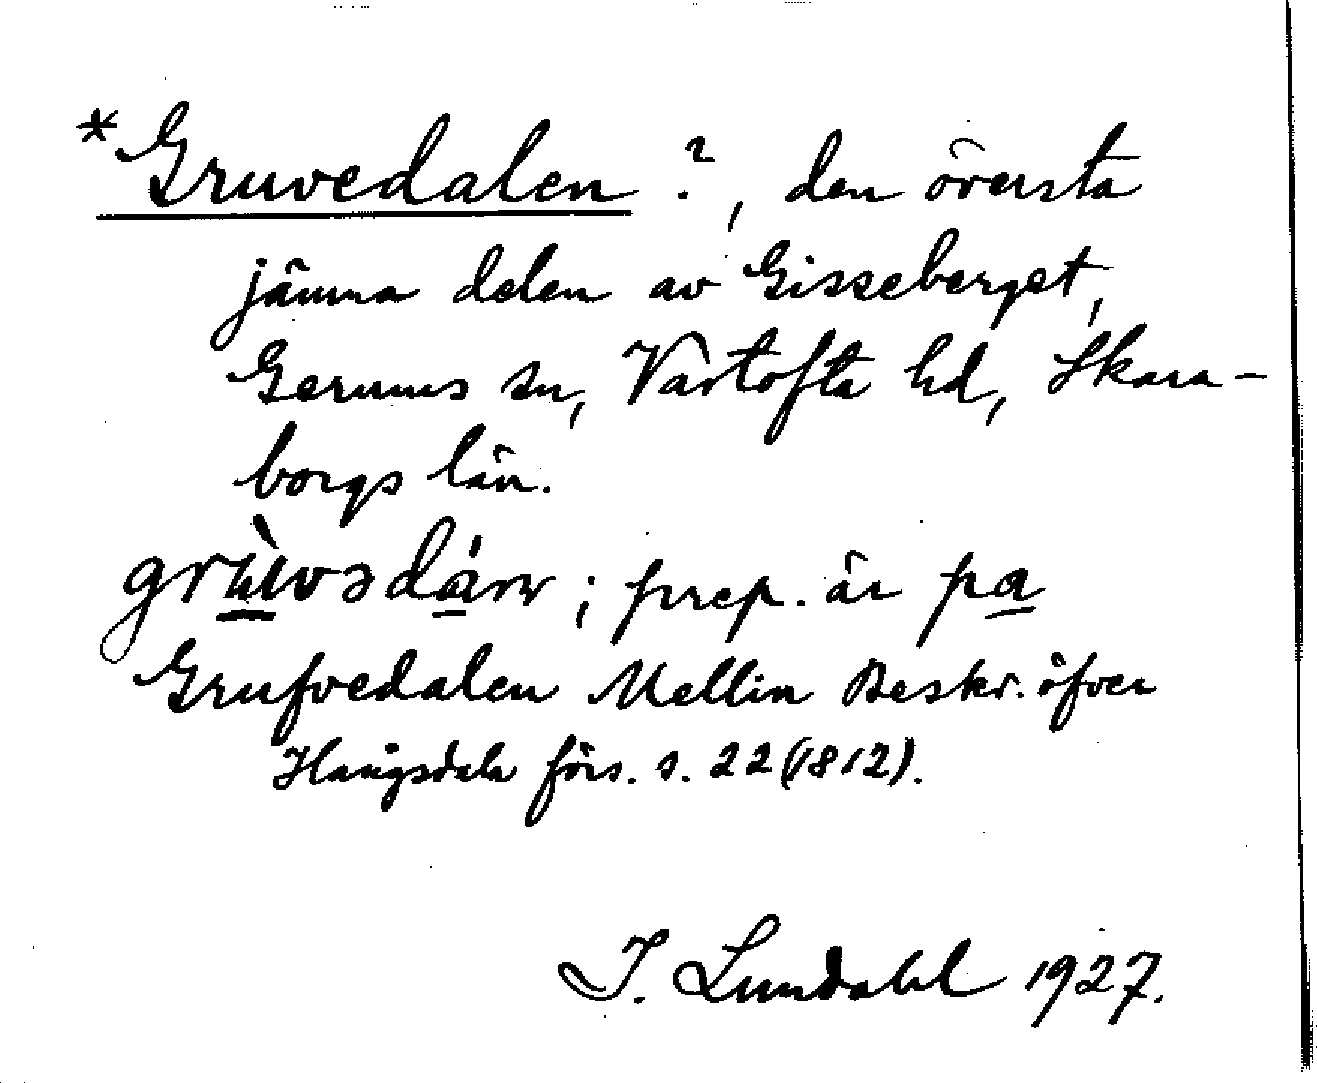 *Gruvedalen ?, den översta
jämna delen av Gisseberget,
Gerums sn, Vartofta hd, Skara-
borgs län.
grùvədánr; prep. är pa
Grufvedalen Mellin Beskr. öfver
Hångsdala förs. s. 22 (1812).
I. Lundahl 1927.